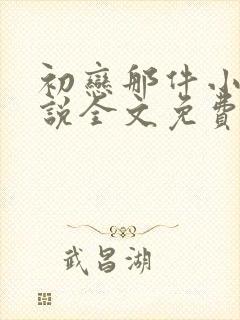 初戀那件小
說全文免費
武昌湖